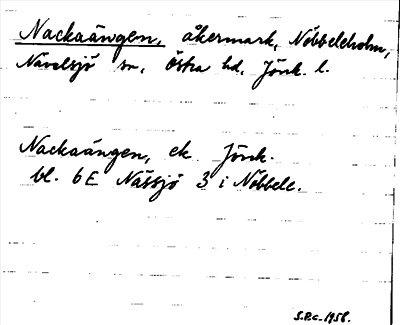 Nackaängen, åkermark, Nöbbeleholm,
Nävelsjö sn, Östra hd, Jönk. l.
Nackaängen, ek. Jönk.
bl. 6E Nässjö 3 i Nöbbele.
S.P.C. 1958.